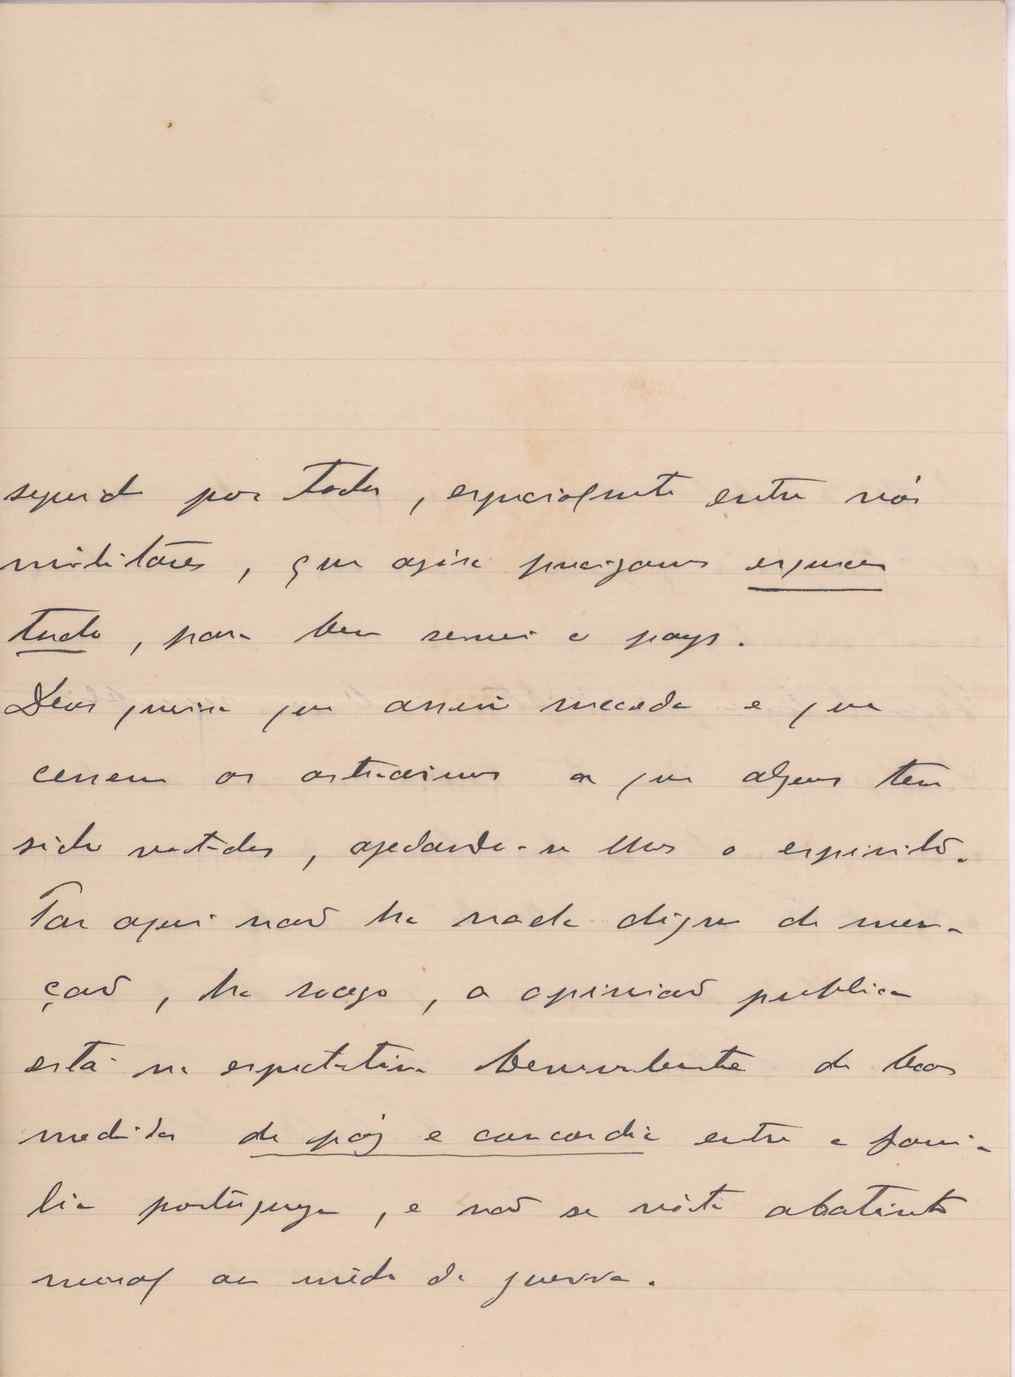 seguido por todos, especialmente entre nós
militares, que agora precisamos esquecer
tudo, para bem servir o payz.
Deus queira que assim succeda e que
cessem os ostracismos a que alguns tem
sido votados, apedando-se lhes o espirito.
Por aqui naõ ha nada digno de men-
çaõ, ha socego, a opiniaõ publica
está na espectativa benevolente de boas
medidas de páz e concordia entre a fami-
lia portugueza, e naõ se nóta abatimento
moral ou mêdo da guerra.